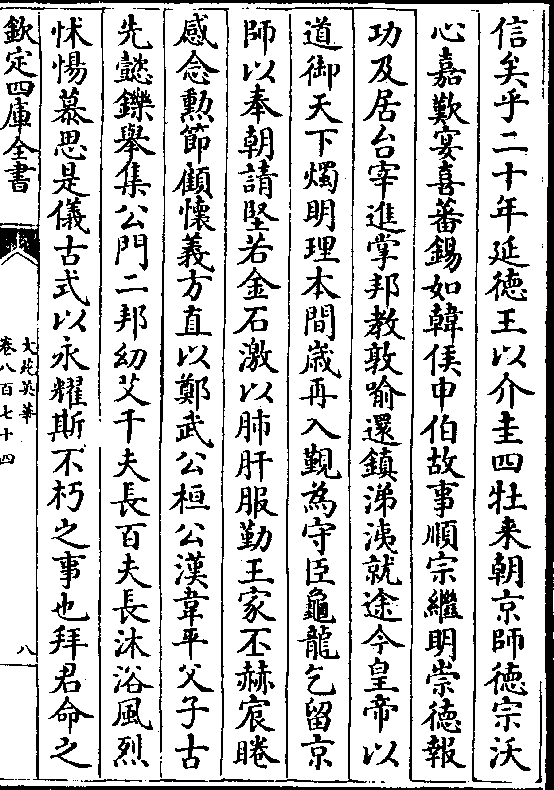 信矣乎二十年延德王以介圭四牡来朝京師德宗沃
心嘉歎宴喜蕃錫如韓侯申伯故事順宗繼明崇德報
功及居台宰進掌邦教敦喻還鎮涕洟就途今皇帝以
道御天下燭明理本間歲再入覲為守臣龜龍乞留京
師以奉朝請堅若金石激以肺肝服勤王家丕赫宸睠
感念勲節顧懷義方直以鄭武公桓公漢韋平父子古
先懿鑠舉集公門二邦幼艾千夫長百夫長沐浴風烈
怵惕慕思是儀古式以永耀斯不朽之事也拜君命之
欽定四庫全書
文苑英華
卷八百七十四
八